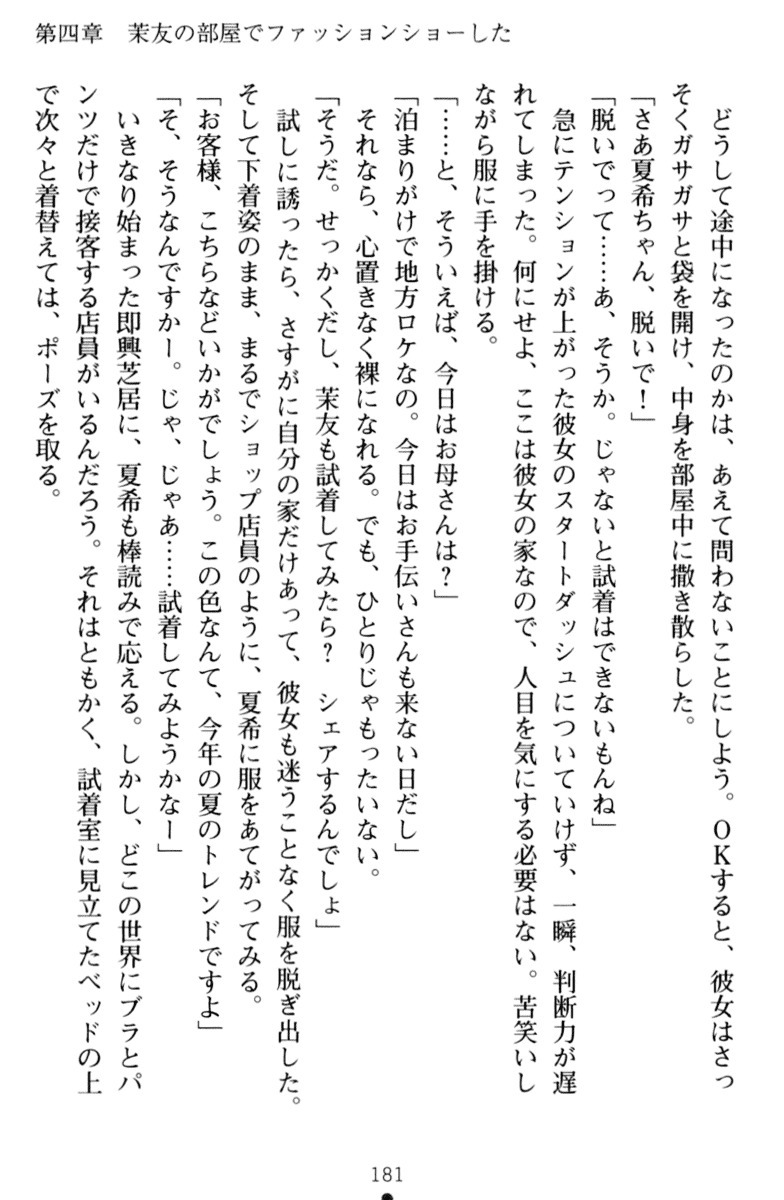 第四章　茉友の部屋でファッションショーした
どうして途中になったのかは、あえて問わないことにしよう。ＯＫすると、彼女はさっ
そくガサガサと袋を開け、中身を部屋中に撒き散らした。
「さあ夏希ちゃん、脱いで！」
「脱いでって……あ、そうか。じゃないと試着はできないもんね」
急にテンションが上がった彼女のスタートダッシュについていけず、一瞬、判断力が遅
れてしまった。何にせよ、ここは彼女の家なので、人目を気にする必要はない。苦笑いし
ながら服に手を掛ける。
「……と、そういえば、今日はお母さんは？」
「泊まりがけで地方ロケなの。今日はお手伝いさんも来ない日だし」
それなら、心置きなく裸になれる。でも、ひとりじゃもったいない。
「そうだ。せっかくだし、茉友も試着してみたら？　シェアするんでしょ」
試しに誘ったら、さすがに自分の家だけあって、彼女も迷うことなく服を脱ぎ出した。
そして下着姿のまま、まるでショップ店員のように、夏希に服をあてがってみる。
「お客様、こちらなどいかがでしょう。この色なんて、今年の夏のトレンドですよ」
「そ、そうなんですかー。じゃ、じゃあ……試着してみようかなー」
いきなり始まった即興芝居に、夏希も棒読みで応える。しかし、どこの世界にブラとパ
ンツだけで接客する店員がいるんだろう。それはともかく、試着室に見立てたベッドの上
で次々と着替えては、ポーズを取る。
181